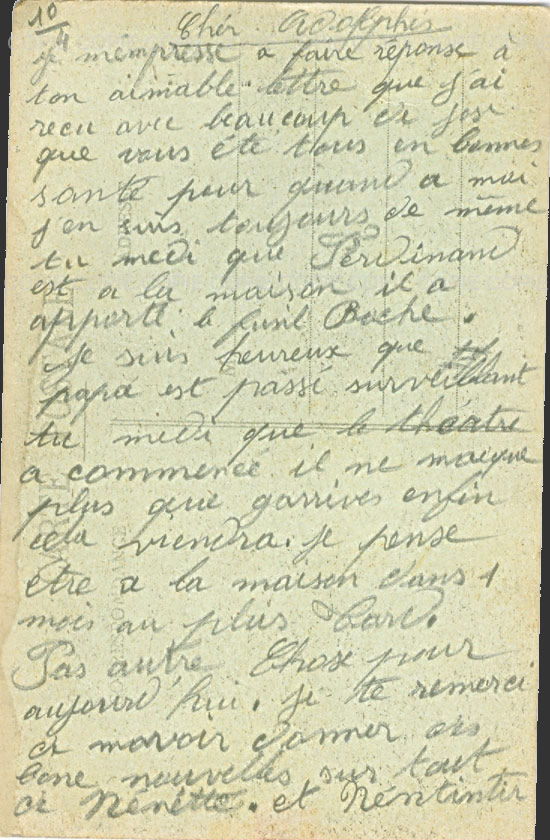 10
4
Chér Adolphis
je mempresse a faire réponse à
ton aimable lettre que j'ai
recu avec beaucoup
que vous éte tous en bonnes
santé pour quand a moi
j'en suis toujours de même
tu medi que Ferdinand
est a la maison il a
apporté le fusil Boche.
Je suis heureux que
papa est passé surveillant
tu medi que le théatre
a commencé il ne manque
plus que j'arrives enfin
cela viendra. je pense
être a la maison dans 1
mois au plus tard.
Pas autre Chose pour
aujourd'hui. je te remerci
de mavoir donner des
bone nouvelles sur tout
de Nénétte. et